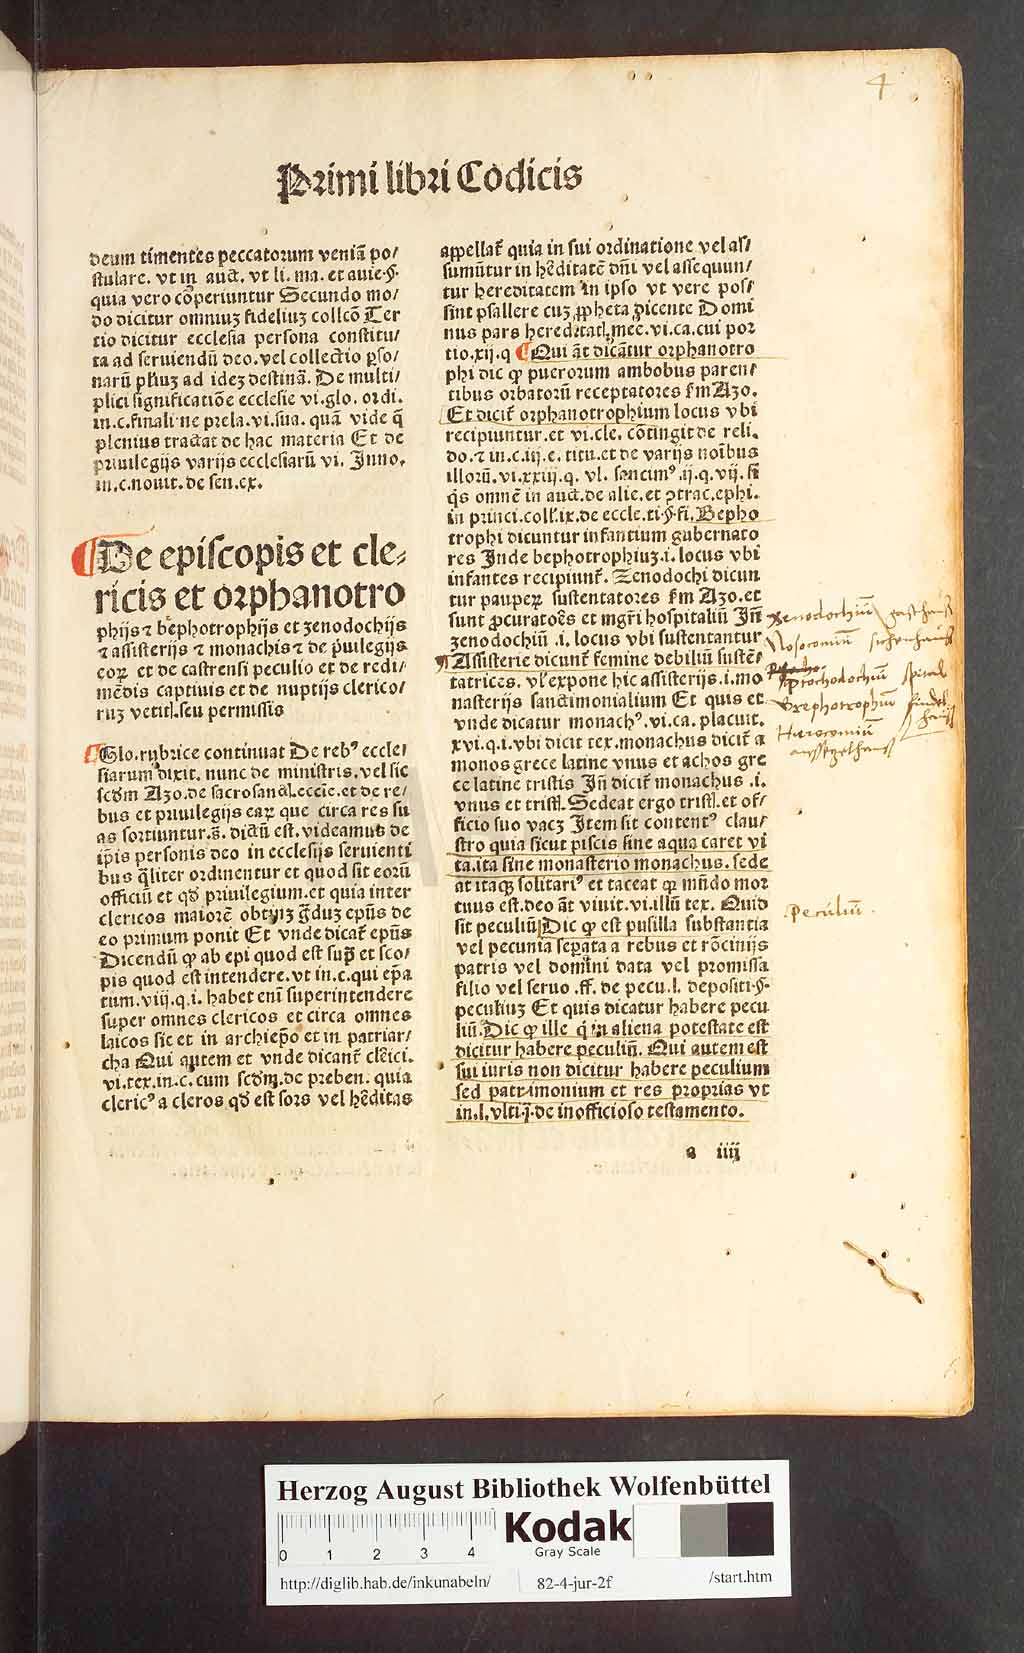 4
Primi libri Codicis
deum timentes peccatorum veniā po/
stulare. vt in auct. vt li. ma. et auie.§.
quia vero cōperiuntur Secundo mo/
do dicitur omniuʒ fideliuʒ collcō Ter
tio dicitur ecclesia persona constitu/
ta ad seruiendū deo. vel collectio p̱so/
narū pliuʒ ad ideʒ destinā. De multi/
plici significatiōe ecclesie vi. glo. ordi.
in.c.finali ne prela.vi.sua. quā vide q̄
plenius tractat de hac materia Et de
priuilegijs varijs ecclesiarū vi. Inno.
in.c.nouit.de sen.ex.
De episcopis et cle⸗
ricis et orphanotro
phijs ⁊ bephotrophijs et zenodochijs
⁊ assisterijs ⁊ monachis ⁊ de p̄uilegijs
eoꝝ et de castrensi peculio et de redi/
mēdis captiuis et de nuptijs clerico/
ruʒ vetitꝭ.seu permissis
Glo.rubrice continuat De rebꝰ eccle/
siarum dixit. nunc de ministris.vel sic
scd̄m Azo.de sacrosanct.eccie.et de re/
bus et priuilegijs eaꝝ que circa res su
as sortiuntur.s̄. dictū est.videamus de
ip̄is personis deo in ecclesijs seruienti
bus q̄liter ordinentur et quod sit eorū
officiū et qd̄ priuilegium.et quia inter
clericos maiorē obtinʒ ḡduʒ ep̄us de
eo primum ponit Et vnde dicat̄ ep̄us
Dicendū ꝙ ab epi quod est sup̄ et sco/
pis quod est intendere.vt in.c.qui ep̄a
tum.viij.q.i. habet enī superintendere
super omnes clericos et circa omnes
laicos sic et in archiep̄o et in patriar/
cha Qui autem et vnde dicant̄ cl̄ici.
vi.tex.in.c.cum scd̄m.de preben. quia
clericꝰ a cleros qd̄ est sors vel hēditas
appellat̄ quia in sui ordinatione vel as/
sumūtur in hēditatē dn̄i vel assequun/
tur hereditatem in ipso vt vere pos/
sint psallere cuʒ ꝓpheta dicente Domi
nus pars hereditatꝭ mee.vi.ca.cui por
tio.xij.q Qui āt dicātur orphanotro
phi dic ꝙ puerorum ambobus paren/
tibus orbatorū receptatores ẜm Azo.
Et dicit̄ orphanotrophium locus vbi
recipiuntur.et vi.cle. cōtingit de reli.
do.⁊ in.c.iij.e.titu.et de varijs noībus
illorū.vi.xxiij.q. vl. sancimꝰ.ij.q.vij. si
q̄s omnē in auct.de alie.et ꝯtrac.ephi.
in princi.coll.ix.de eccle.ti.§.fi. Bepho
trophi dicuntur infantium gubernato
res Inde bephotrophiuʒ.i. locus vbi
infantes recipiunt̄. Zenodochi dicun
tur paupeꝝ sustentatores ẜm Azo.et
sunt ꝓcuratoēs et mgr̄i hospitaliū Jn̄
zenodochiū .i. locus vbi sustentantur
Assisterie dicunt̄ femine debiliū susten̄/
tatrices. vl̓ expone hic assisterijs.i.mo
nasterijs sanctimonialium Et quis et
vnde dicatur monachꝰ.vi.ca. placuit.
xvi.q.i.vbi dicit tex.monachus dicit̄ a
monos grece latine vnus et achos gre
ce latine tristis Jn̄ dicit̄ monachus .i.
vnus et tristꝭ. Sedeat ergo tristꝭ.et of/
ficio suo vacʒ Item sit contentꝰ clau/
stro quia sicut piscis sine aqua caret vi
ta.ita sine monasterio monachus. sede
at itaqʒ solitariꝰ et taceat ꝙ mūdo mor
tuus est.deo āt viuit.vi.illū tex. Quid
sit peculiū Dic ꝙ est pusilla substantia
vel pecunia sepata a rebus et rōcinijs
patris vel domini data vel promissa
filio vel seruo .ff. de pecu.l. depositi.§.
peculiuʒ Et quis dicatur habere pecu
liū. Dic ꝙ ille q̄ in aliena potestate est
dicitur habere peculiū. Qui autem est
sui iuris non dicitur habere peculium
sed patrimonium et res proprias vt
in.l.vlti.q̄.de inofficioso testamento.
a iiij
Xenodochiū gasthauß
Nosocomiū sichenhauß
Ptochodochiū spitual
Brephotrophiū findel
hauß
Peculiū.
Herzog August Bibliothek Wolfenbüttel
0 1 2 3 4
Kodak
Gray Scale
http://diglib.hab.de/inkunabeln/ 82-4-jur-2f /start.htm